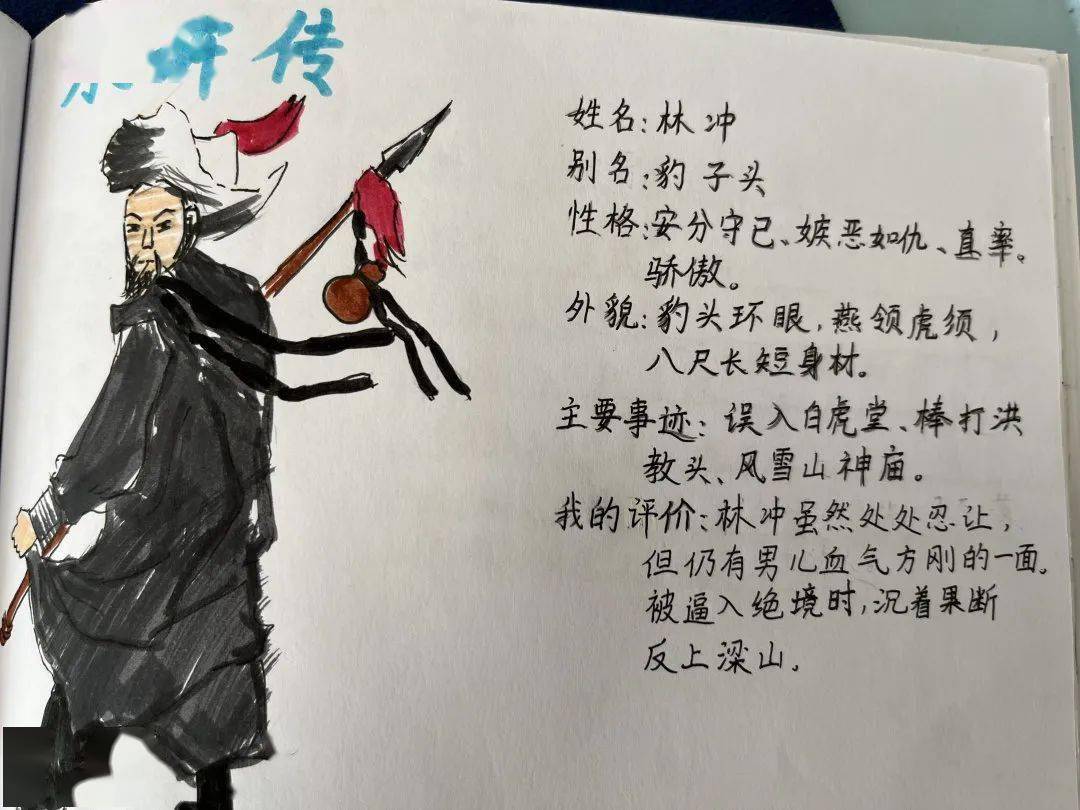 水浒传
姓名:林冲
别名:豹子头
性格:安分守已、嫉恶如仇、直率。
骄傲。
外貌:豹头环眼,燕领虎须,
八尺长短身材。
主要事迹:误入白虎堂、棒打洪
教头、风雪山神庙。
我的评价:林冲虽然处处忍让,
但仍有男儿血气方刚的一面。
被逼入绝境时,沉着果断
反上梁山.